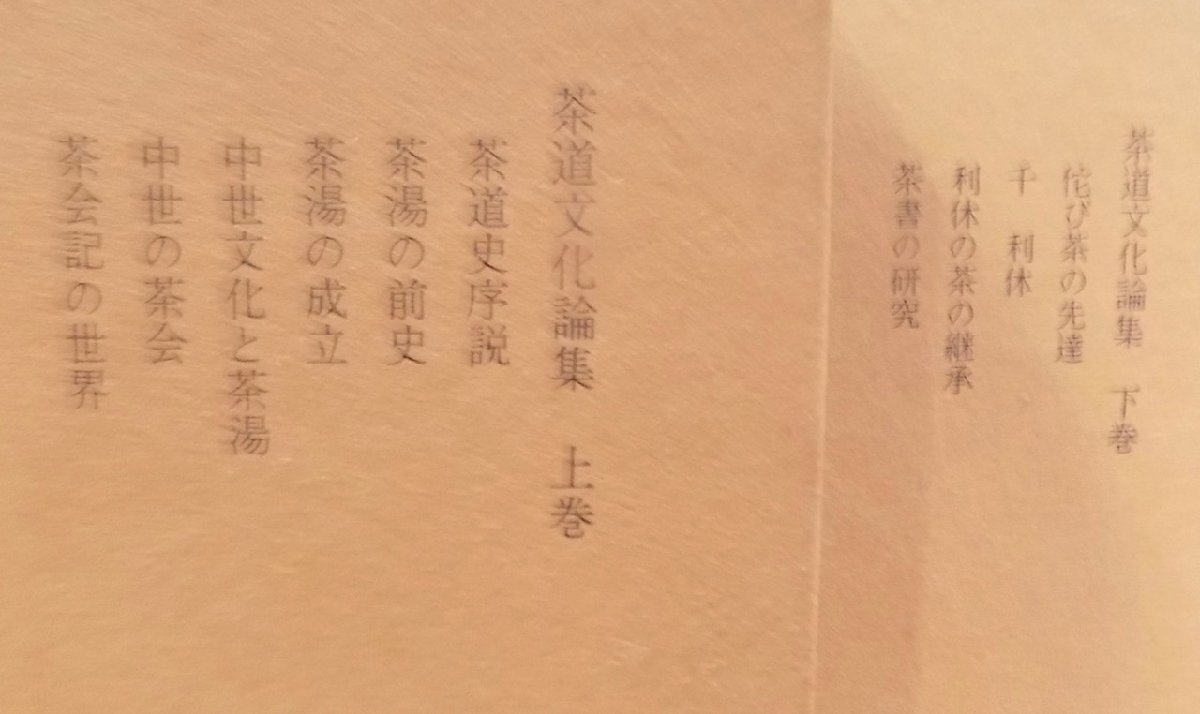 茶道文化論集　下巻
侘び茶の先達
千　利休
利休の茶の継承
茶書の研究
茶道文化論集　上巻
茶道史序説
茶湯の前史
茶湯の成立
中世文化と茶湯
中世の茶会
茶会記の世界